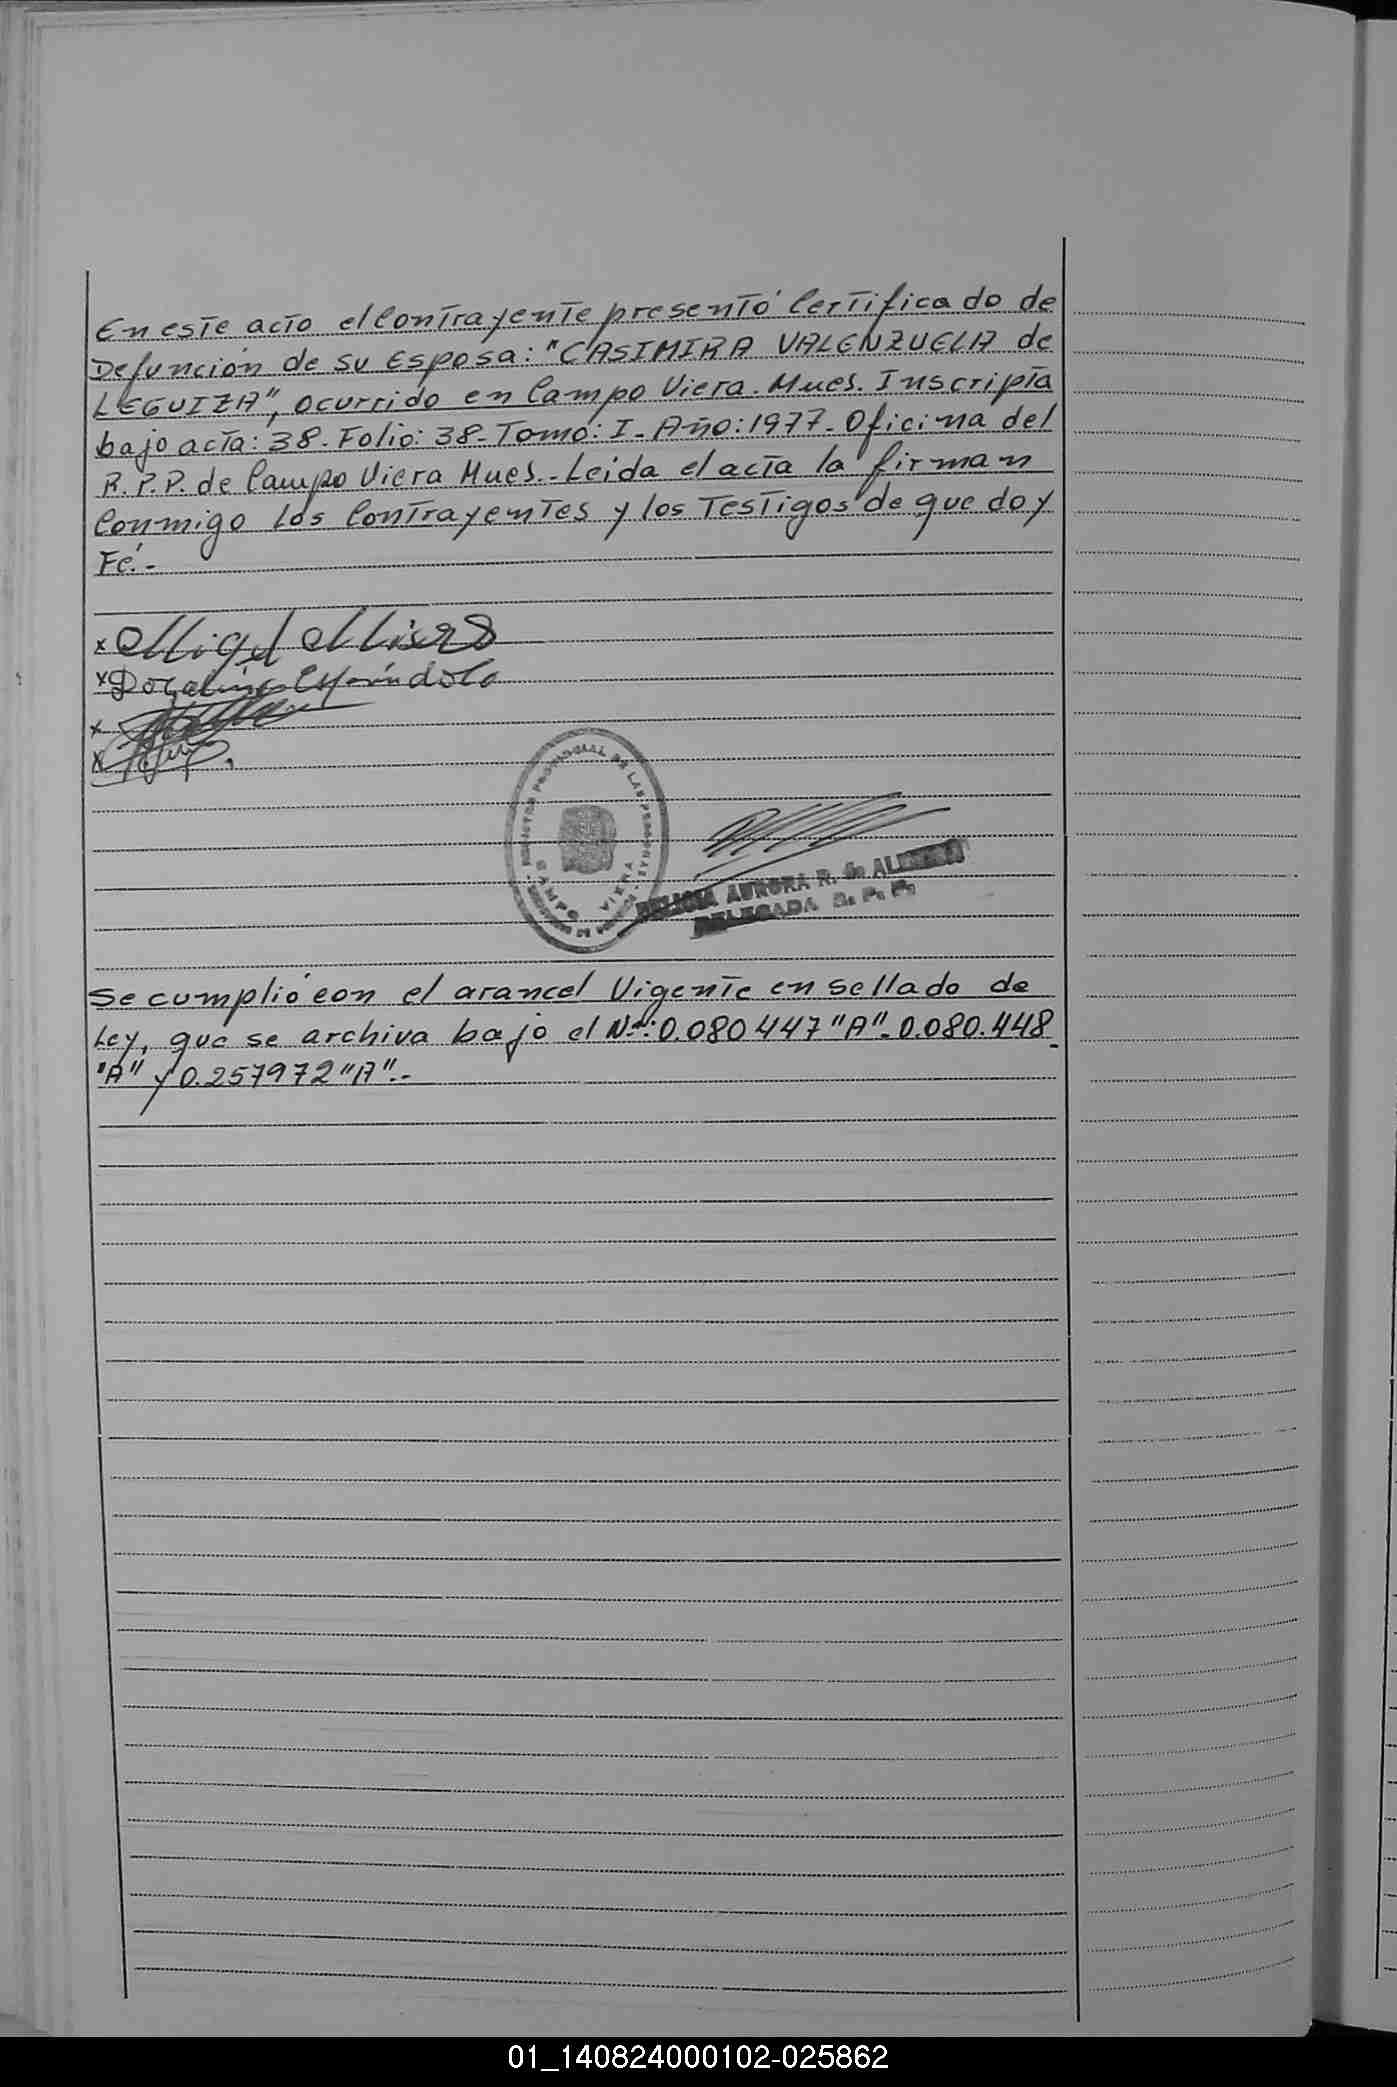 En este acto el Contrayente presentó Certificado de
Defunción de su Esposa: "CASIMIRA VALENZUELA de
LEGUIZA", ocurrido en Campo Viera. Mnes. Inscripta
bajo acta: 38. Folio: 38- Tomo: I- Año: 1977- Oficina del
R.P.P. de Campo Viera Mnes.- Leida el acta la firman
Conmigo los Contrayentes y los Testigos de que doy
Fé.-
x Miguel
x Espíndola
x
x
REGISTRO PROVINCIAL DE LAS PERSONAS
CAMPO VIERA
DELICIA AURORA R. de
DELEGADA R. P. P.
Se cumplió con el arancel Vigente en sellado de
Ley, que se archiva bajo el Nº: 0.080447 "A"- 0.080.448
"A" y 0.257972 "A".-
01_140824000102-025862